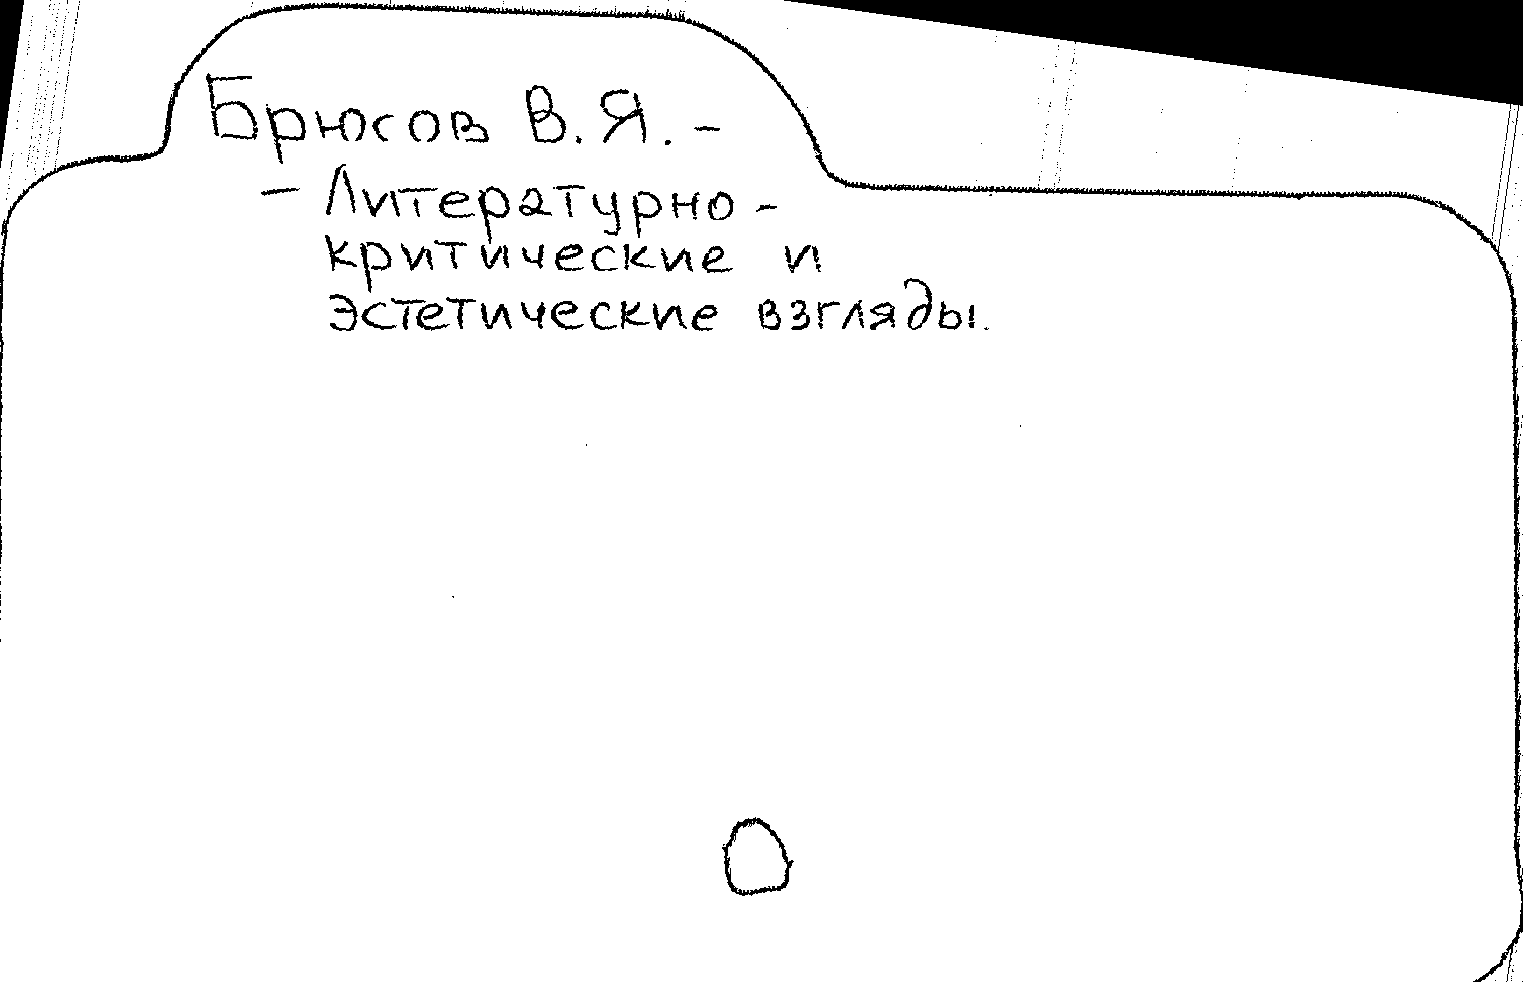 Брюсов В.Я. -
- Литературно -
критические и
эстетические взгляды.